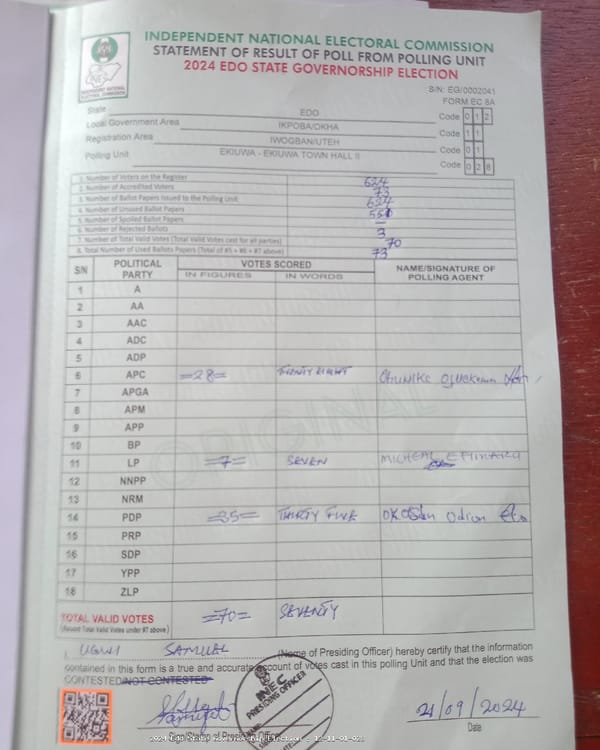 INDEPENDENT NATIONAL ELECTORAL COMMISSION
STATEMENT OF RESULT OF POLL FROM POLLING UNIT
2024 EDO STATE GOVERNORSHIP ELECTION
INDEPENDENT NATIONAL ELECTORAL COMMISSION
S/N: EG/0002041
FORM EC 8A
State EDO Code 0 1 2
Local Government Area IKPOBA/OKHA Code 1 1
Registration Area IWOGBAN/UTEH Code 0 1
Polling Unit EKIUWA - EKIUWA TOWN HALL II Code 0 2 8
1. Number of Voters on the Register 624
2. Number of Accredited Voters 73
3. Number of Ballot Papers Issued to the Polling Unit 624
4. Number of Unused Ballot Papers 551
5. Number of Spoiled Ballot Papers –
6. Number of Rejected Ballots 3
7. Number of Total Valid Votes (Total Valid Votes cast for all parties) 70
8. Total Number of Used Ballots Papers (Total of #5 + #6 + #7 above) 73
S/N POLITICAL PARTY VOTES SCORED NAME/SIGNATURE OF POLLING AGENT
IN FIGURES IN WORDS
1 A
2 AA
3 AAC
4 ADC
5 ADP
6 APC =28= TWENTY EIGHT
7 APGA
8 APM
9 APP
10 BP
11 LP =7= SEVEN MICHEAL
12 NNPP
13 NRM
14 PDP =35= THIRTY FIVE Odion
15 PRP
16 SDP
17 YPP
18 ZLP
ORIGINAL
TOTAL VALID VOTES =70= SEVENTY
(Record Total Valid Votes under #7 above)
I, UGWI SAMUEL (Name of Presiding Officer) hereby certify that the information
contained in this form is a true and accurate account of votes cast in this polling Unit and that the election was
CONTESTED/NOT CONTESTED
INEC
PRESIDING OFFICER
21/09/2024
Date